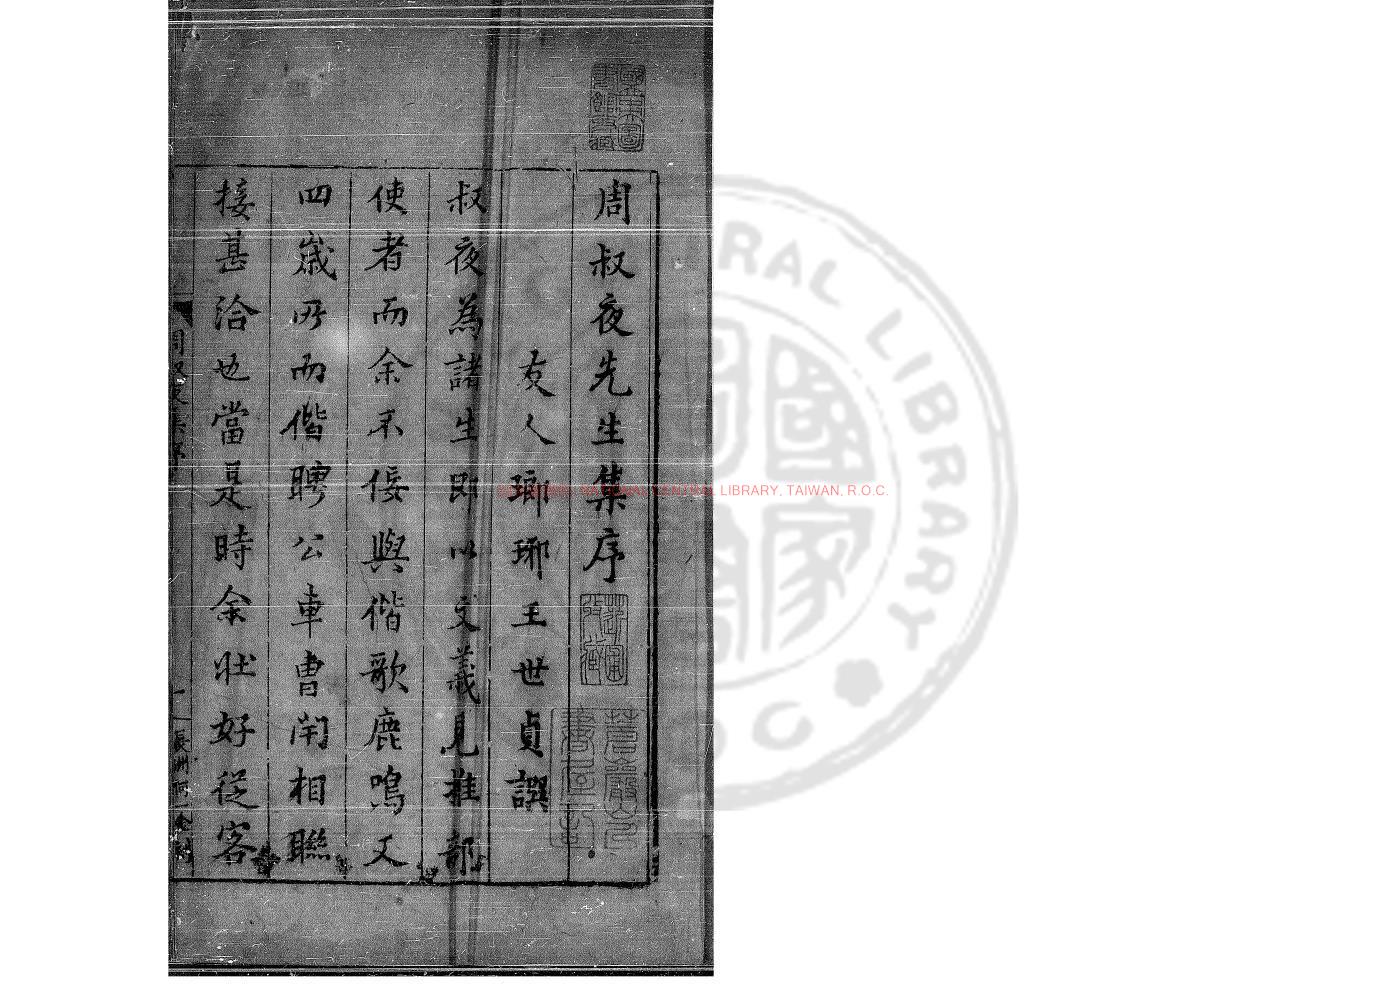 周叔夜先生集序
友人瑯琊王世貞譔
叔夜為諸生即以文義見推部
使者而余不佞與偕歌鹿鳴又
四歲所而偕聘公車曹閈相聯
接甚洽也當是時余壯好從客
NATIONAL CENTRAL LIBRARY, TAIWAN, R.O.C.
RAL LIBRARY